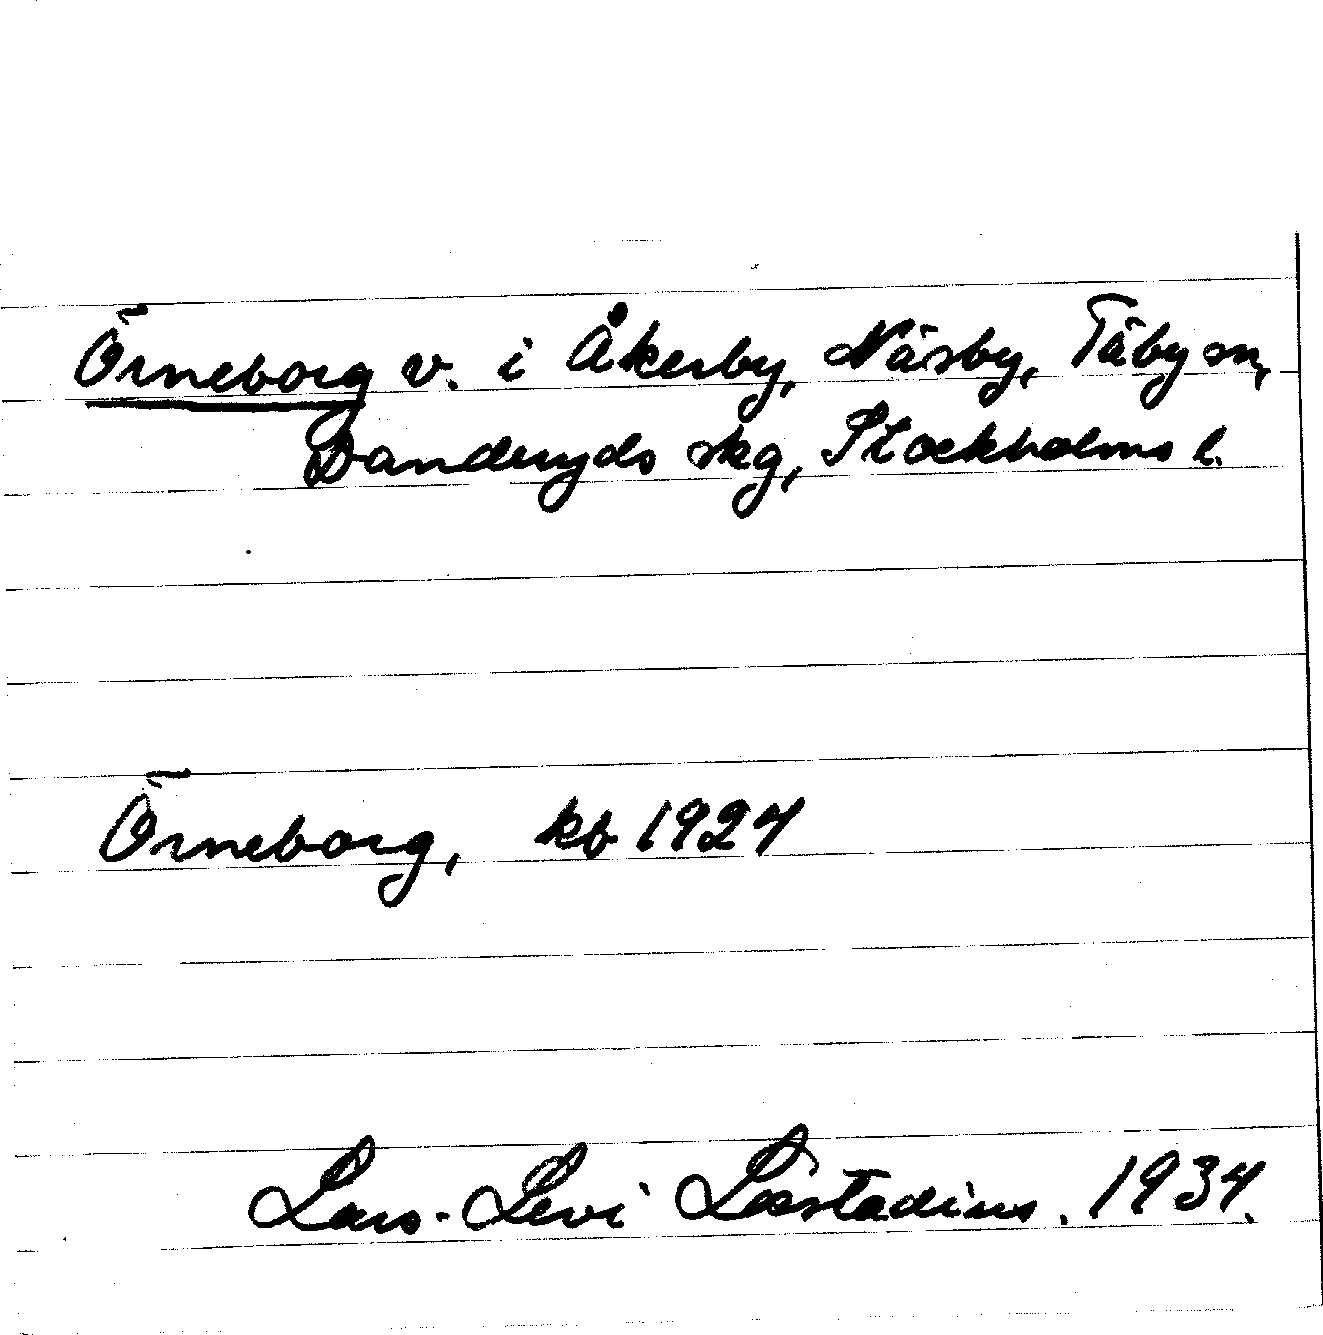 Örneborg v. i Åkerby, Näsby, Täby sn,
Danderyds skg, Stockholms l.
Örneborg, kb 1924
Lars-Levi Læstadius. 1934.